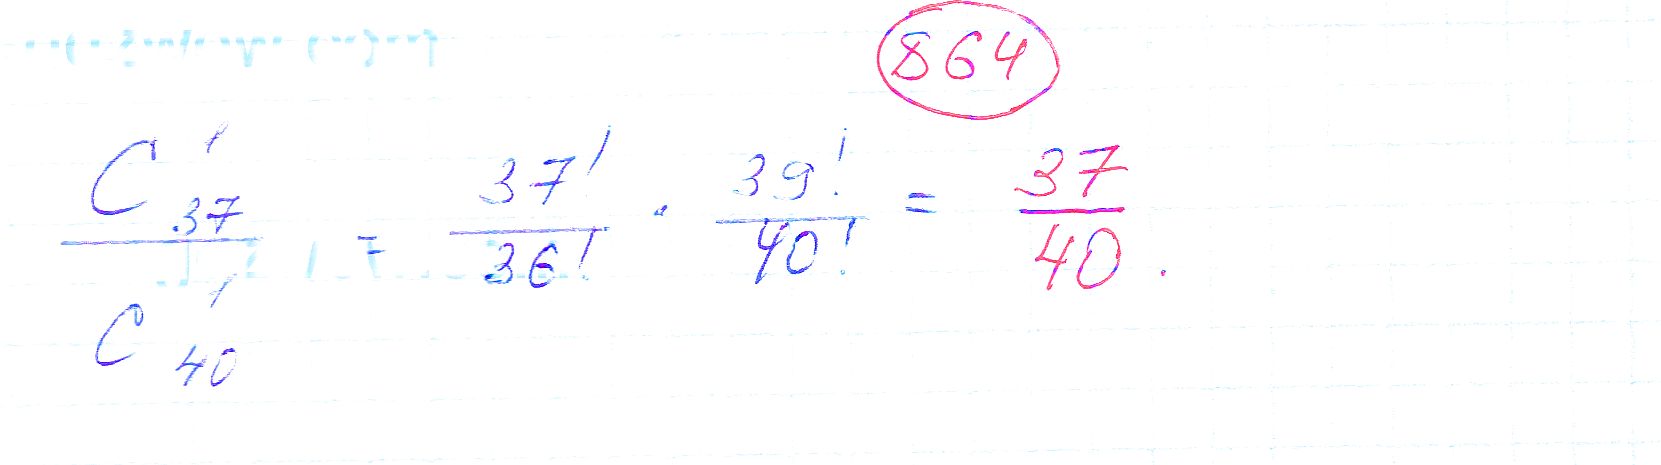 864
C¹₃₇ / C¹₄₀ = 37! / 36! · 39! / 40! = 37 / 40 .